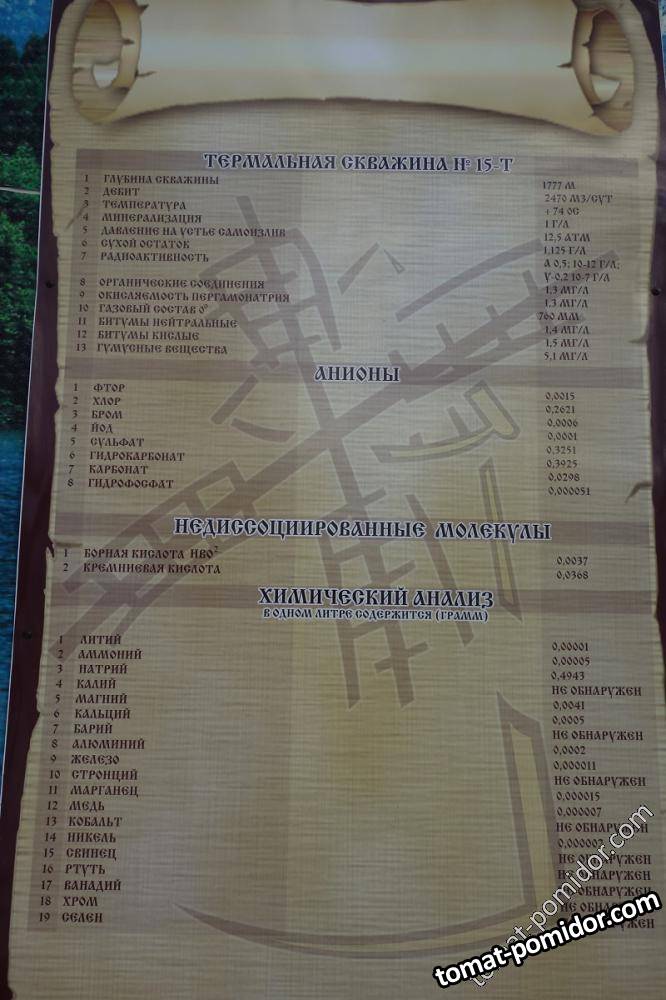 ТЕРМАЛЬНАЯ СКВАЖИНА № 15-Т
1 ГЛУБИНА СКВАЖИНЫ 1777 М
2 ДЕБИТ 2470 М3/СУТ
3 ТЕМПЕРАТУРА + 74 0С
4 МИНЕРАЛИЗАЦИЯ 1 Г/Л
5 ДАВЛЕНИЕ НА УСТЬЕ САМОИЗЛИВ 12,5 АТМ
6 СУХОЙ ОСТАТОК 1,125 Г/Л
7 РАДИОАКТИВНОСТЬ А 0,5; 10-12 Г/Л;
У-0,2 10-7 Г/Л
8 ОРГАНИЧЕСКИЕ СОЕДИНЕНИЯ 1,3 МГ/Л
9 ОКИСЛЯЕМОСТЬ ПЕРГАМОНАТРИЯ 1,3 МГ/Л
10 ГАЗОВЫЙ СОСТАВ 0° 760 ММ
11 БИТУМЫ НЕЙТРАЛЬНЫЕ 1,4 МГ/Л
12 БИТУМЫ КИСЛЫЕ 1,5 МГ/Л
13 ГУМУСНЫЕ ВЕЩЕСТВА 5,1 МГ/Л
АНИОНЫ
1 ФТОР 0,0015
2 ХЛОР 0,2621
3 БРОМ 0,0006
4 ЙОД 0,0001
5 СУЛЬФАТ 0,3251
6 ГИДРОКАРБОНАТ 0,3925
7 КАРБОНАТ 0,0298
8 ГИДРОФОСФАТ 0,000051
НЕДИССОЦИИРОВАННЫЕ МОЛЕКУЛЫ
1 БОРНАЯ КИСЛОТА НВО² 0,0037
2 КРЕМНИЕВАЯ КИСЛОТА 0,0368
ХИМИЧЕСКИЙ АНАЛИЗ
В ОДНОМ ЛИТРЕ СОДЕРЖИТСЯ (ГРАММ)
1 ЛИТИЙ 0,00001
2 АММОНИЙ 0,00005
3 НАТРИЙ 0,4943
4 КАЛИЙ НЕ ОБНАРУЖЕН
5 МАГНИЙ 0,0041
6 КАЛЬЦИЙ 0,0005
7 БАРИЙ НЕ ОБНАРУЖЕН
8 АЛЮМИНИЙ 0,0002
9 ЖЕЛЕЗО 0,000011
10 СТРОНЦИЙ НЕ ОБНАРУЖЕН
11 МАРГАНЕЦ 0,000015
12 МЕДЬ 0,000007
13 КОБАЛЬТ НЕ ОБНАРУЖЕН
14 НИКЕЛЬ 0,000002
15 СВИНЕЦ НЕ ОБНАРУЖЕН
16 РТУТЬ НЕ ОБНАРУЖЕН
17 ВАНАДИЙ НЕ ОБНАРУЖЕН
18 ХРОМ НЕ ОБНАРУЖЕН
19 СЕЛЕН НЕ ОБНАРУЖЕН
tomat-pomidor.com
tomat-pomidor.com